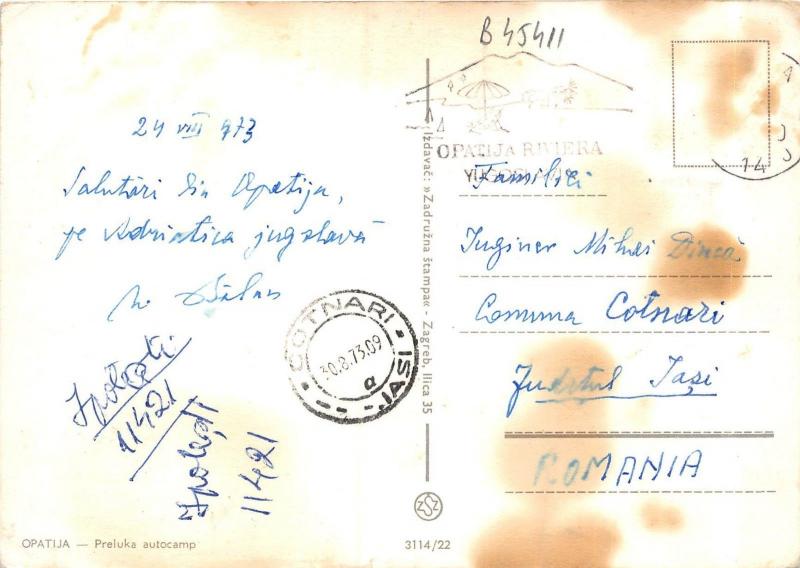 B45411
24 VIII 973
Salutări din Opatija,
pe Adriatica jugslavă
OPATIJA RIVIERA
14
Familiei
Inginer Mihai Dincă
Comuna Cotnari
Județul Iași
ROMANIA
COTNARI - IAȘI
30.8.73.09
a
11421
11421
Izdavač: »Zadružna štampa« - Zagreb, Ilica 35
ZSZ
OPATIJA — Preluka autocamp
3114/22